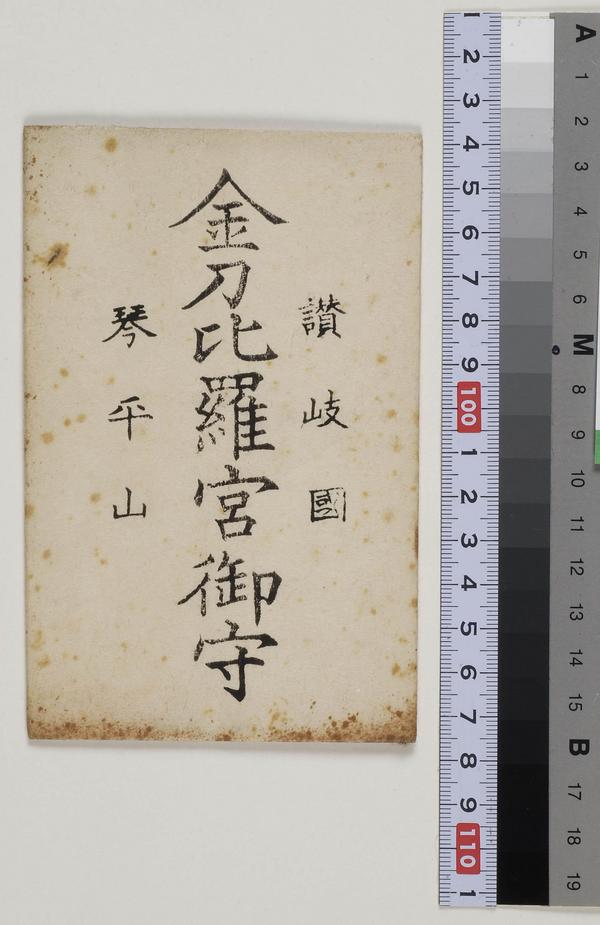 讃岐國
金刀比羅宮御守
琴平山
1
2
3
4
5
6
7
8
9
100
1
2
3
4
5
6
7
8
9
110
1
A
1
2
3
4
5
6
M
8
9
10
11
12
13
14
15
B
17
18
19